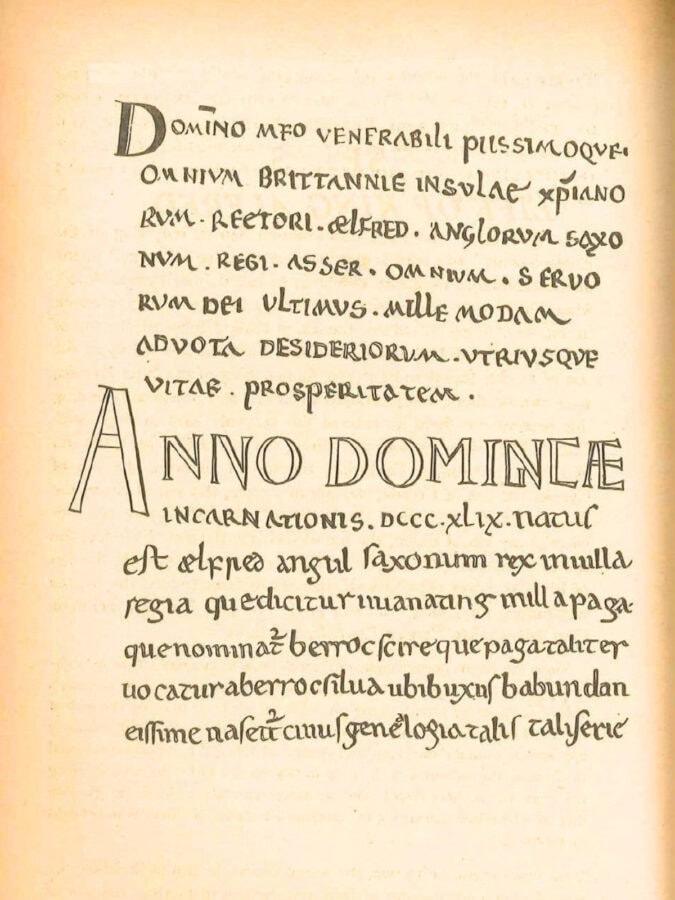 DOMĪNO MEO VENERABILI PIISSIMOQUE·
OMNIUM BRITTANNIE INSULAE XP̄IANO
RUM · RECTORI · ÆLFRED · ANGLORUM SAXO
NUM · REGI · ASSER · OMNIUM · SERVO
RUM DEI ULTIMUS · MILLE MODAM
ADVOTA DESIDERIORUM · UTRIUSQUE
VITAE · PROSPERITATEM ·
ANNO DOMINICÆ
INCARNATIONIS · DCCC · XLIX · natus
est ælfred angul saxonum rex in uilla
regia quedicitur uuanating in illa paga·
quenominat᷒ berrocscirequepagataliter
uocaturaberrocsilua ubibuxus habundan
tissime nascit᷒ cuius genelogia talis taliserie